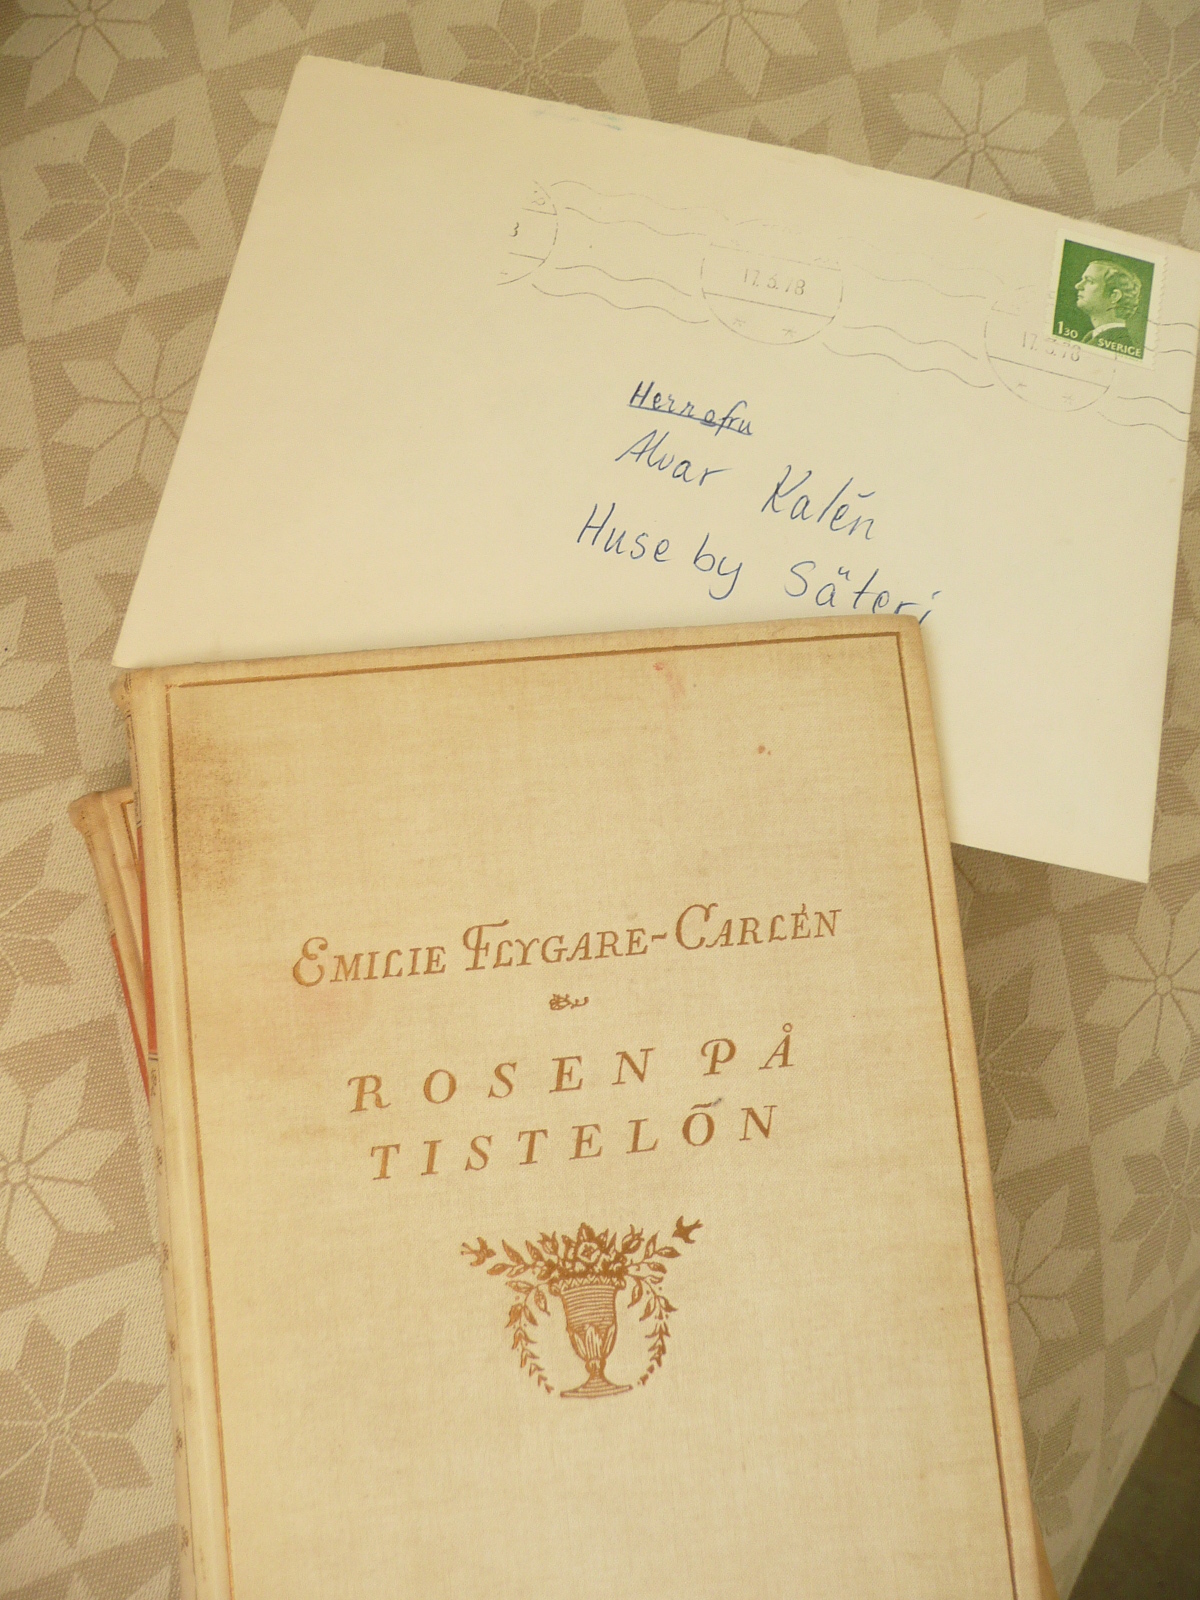 17.3.78
1.30 SVERIGE
17.3.78
Herr o fru
Alvar Kalén
Huseby Säteri
EMILIE FLYGARE-CARLÉN
ROSEN PÅ
TISTELÖN